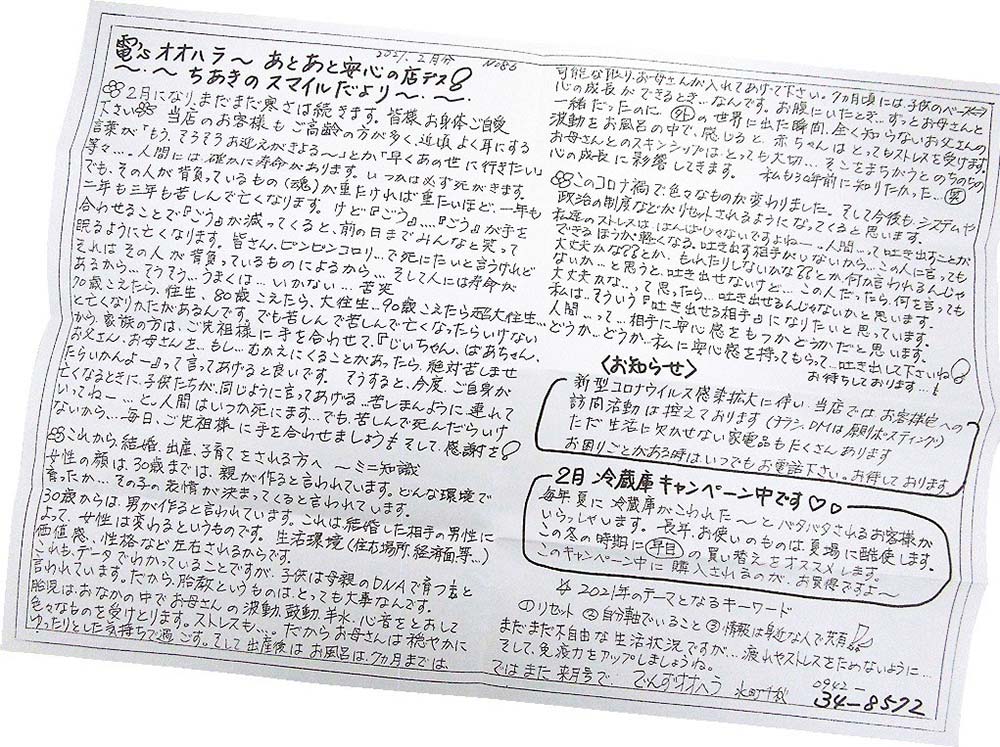 電's オオハラ～ あとあと安心の店デス
2021. 2月分 No86
～・～ ちあきの スマイルだより ～・～・
2月になり、まだまだ寒さは続きます。皆様、お身体ご自愛
下さい 当店のお客様も ご高齢の方が多く、近頃よく耳にする
言葉が「もう、そろそろお迎えがきよる～」とか「早くあの世に行きたい」
等々…。人間には確かに寿命があります。いつかは必ず死がきます。
でも、その人が背負っているもの(魂)が重たければ重たいほど、一年も
二年も三年も苦しんで亡くなります。けど『ごう』…『ごう』が手を
合わせることで『ごう』が減ってくると、前の日までみんなと笑って
眠るように亡くなります。皆さん、ピンピンコロリ…で死にたいと言うけれど
それは その人が 背負っているものによるから… そして人には寿命が
あるから… そうそう、うまくは… いかない… 苦笑
70歳こえたら、往生、80歳こえたら、大往生…90歳こえたら超大往生…
と亡くなりかたがあるんです。でも苦しんで苦しんで亡くなったらいけない
から、家族の方は、ご先祖様に手を合わせて、『じいちゃん、ばあちゃん、
お父さん、お母さんを、もし… むかえにくることがあったら、絶対苦しませ
たらいかんよー』って言ってあげると良いです。 そうすると、今度、ご自身が
亡くなるときに、子供たちが、同じように言ってあげる…苦しまんように連れて
いってねー…と。人間はいつか死にます…でも、苦しんで死んだらいけ
ないから… 毎日、ご先祖様に手を合わせましょうも そして、感謝を
これから結婚、出産、子育てをされる方へ ～ミニ知識
女性の顔は、30歳までは、親が作ると言われています。どんな環境で
育ったか… その子の表情が決まってくると言われています。
30歳からは、男が作ると言われています。これは結婚した相手の男性に
よって、女性は変わるというものです。生活環境(住む場所、経済面、等…)
価値感、性格など左右されるからです。
これも、データでわかっていることですが、子供は母親のDNAで育つと
言われています。だから、胎教というものは、とっても大事なんです。
胎児は、おなかの中でお母さんの波動、鼓動、羊水、心音をとおして
色々なものを受けとります。ストレスも…。だからお母さんは穏やかに
ゆったりとした気持ちで過ごす。そして出産後は お風呂は、7カ月までは、
可能な限り、お母さんが入れてあげて下さい。7カ月頃には、子供のペースで
心の成長ができるとき…なんです。お腹にいたとき、ずっとお母さんと
一緒だったのに 外の世界に出た瞬間、全く知らないお父さんの
波動をお風呂の中で、感じると、赤ちゃんは とってもストレスを受けます。
お母さんとのスキンシップは、とっても大切… そこをまちがうとのちのちの
心の成長に影響してきます。 私も30年前に知りたかった… 笑
このコロナ禍で色々なものが変わりました。そして今後も、システムや
政治の制度などがリセットされるようになってくると思います。
私達のストレスは、はんぱじゃないですよねー…人間…って吐き出すことが
できるほうが軽くなる。吐き出す相手がいないから… この人に言っても
大丈夫かな??とか、もれたりしないかな??とか、何か言われるんじゃ
ないか…と思うと、吐き出せないけど… この人だったら、何を言っても
大丈夫かな…って思ったら… 吐き出せるんじゃないかと思います。
私は、そういう『吐き出せる相手』になりたいと思っています。
人間…って… 相手に安心感をもつかどうかだと思います。
どうか、どうか、私に安心感を持ってもらって…吐き出して下さいね
お待ちしております…!
〈お知らせ〉
新型コロナウイルス感染拡大に伴い、当店では お客様宅への
訪問活動は控えております(チラシ、DMは原則ポスティング)
ただ 生活に欠かせない家電品もたくさんあります
お困りごとがある時はいつでもお電話下さい。お待しております
2月 冷蔵庫キャンペーン中です♡♡
毎年、夏に冷蔵庫がこわれた～っとバタバタされるお客様が
いらっしゃいます。長年、お使いのものは、夏場に酷使します。
この冬の時期に 早目 の買い替えをオススメします。
このキャンペーン中に購入されるのが、お買得ですよ～
2021年のテーマとなるキーワード
①リセット ②自分軸でいること ③情報は身近な人で共有
まだまだ不自由な生活状況ですが… 疲れやストレスをためないように…
そして、免疫力をアップしましょうね。
ではまた 来月号で… でんずオオハラ 水町千秋
0942－
34－8572